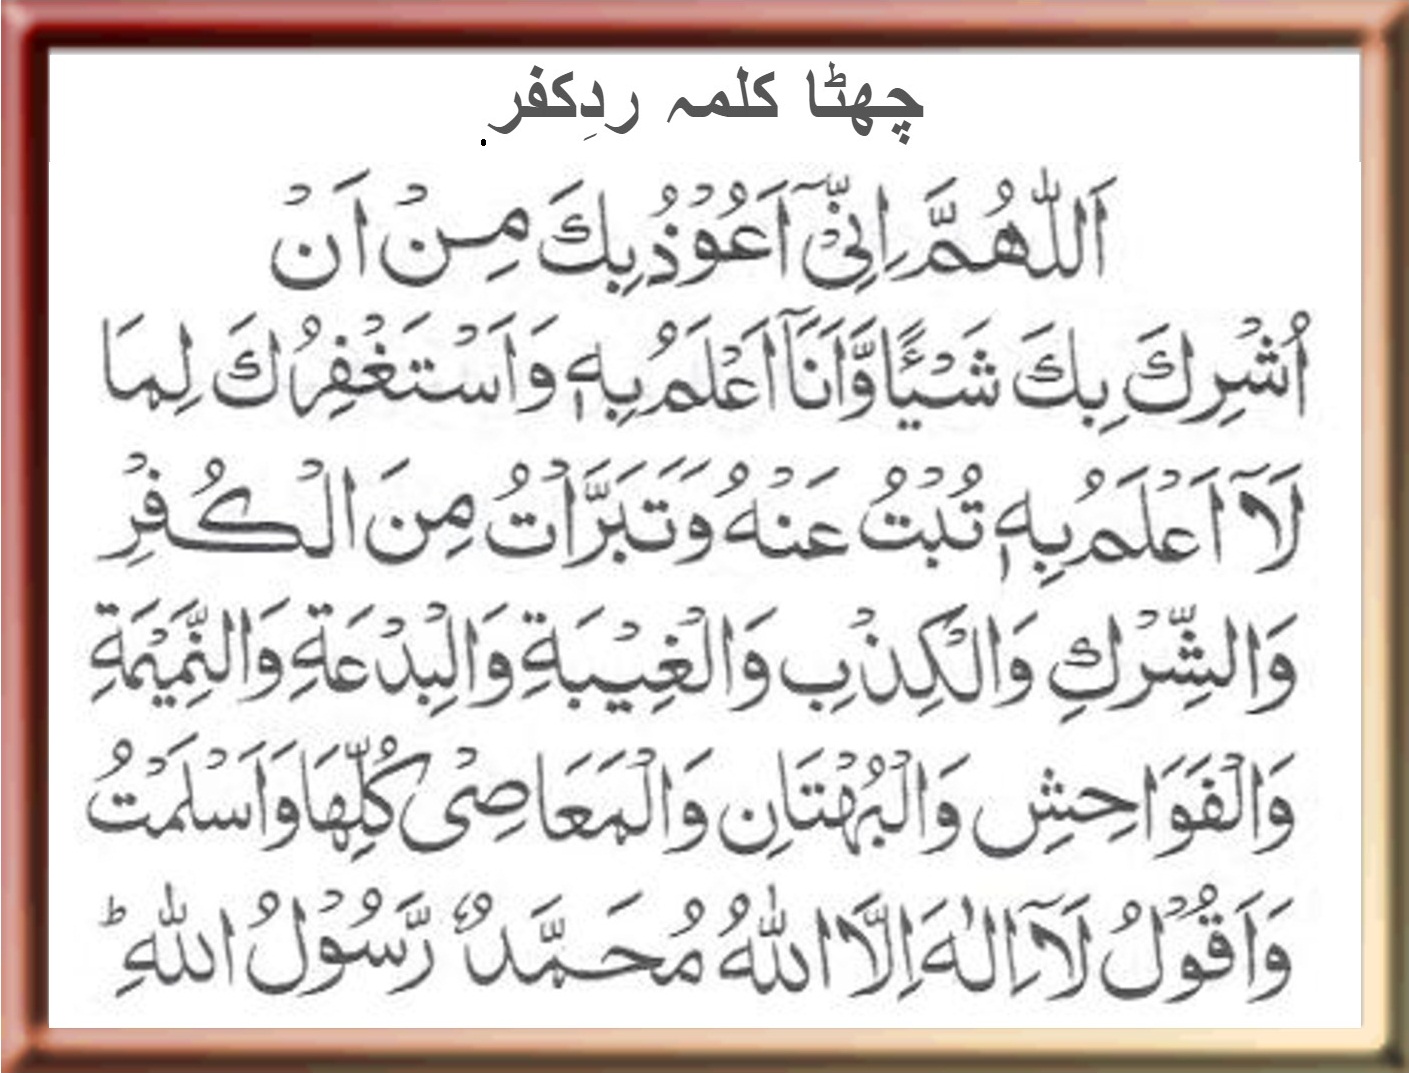 چھٹا کلمہ ردِکفر
اَللّٰهُمَّ اِنِّیْٓ اَعُوْذُ بِكَ مِنْ اَنْ
اُشْرِكَ بِكَ شَیْـًٔا وَّاَنَآ اَعْلَمُ بِهٖ وَاَسْتَغْفِرُكَ لِمَا
لَآ اَعْلَمُ بِهٖ تُبْتُ عَنْهُ وَتَبَرَّاْتُ مِنَ الْكُفْرِ
وَالشِّرْكِ وَالْكِذْبِ وَالْغِیْبَةِ وَالْبِدْعَةِ وَالنَّمِیْمَةِ
وَالْفَوَاحِشِ وَالْبُهْتَانِ وَالْمَعَاصِیْ كُلِّهَا وَاَسْلَمْتُ
وَاَقُوْلُ لَآ اِلٰهَ اِلَّا اللّٰهُ مُحَمَّدٌ رَّسُوْلُ اللّٰهِ ؕ